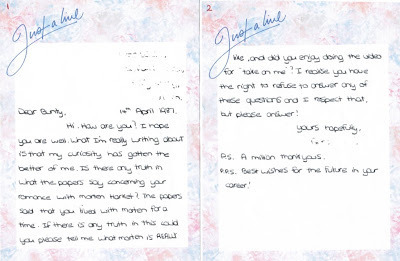 1
Just a line
Dear Bunty,
14th April 1987.
Hi. How are you? I hope
you are well. What I'm really writing about
is that my curiosity has gotten the
better of me. Is there any truth in
what the papers say concerning your
romance with Morten Harket? The papers
said that you lived with Morten for a
time. If there is any truth in this could
you please tell me what Morten is REALLY
2
Just a line
like, and did you enjoy doing the video
for 'take on me'? I realise you have
the right to refuse to answer any of
these questions and I respect that,
but please answer!
Yours hopefully,
P.S. A million thankyous.
P.P.S. Best wishes for the future in your
career!